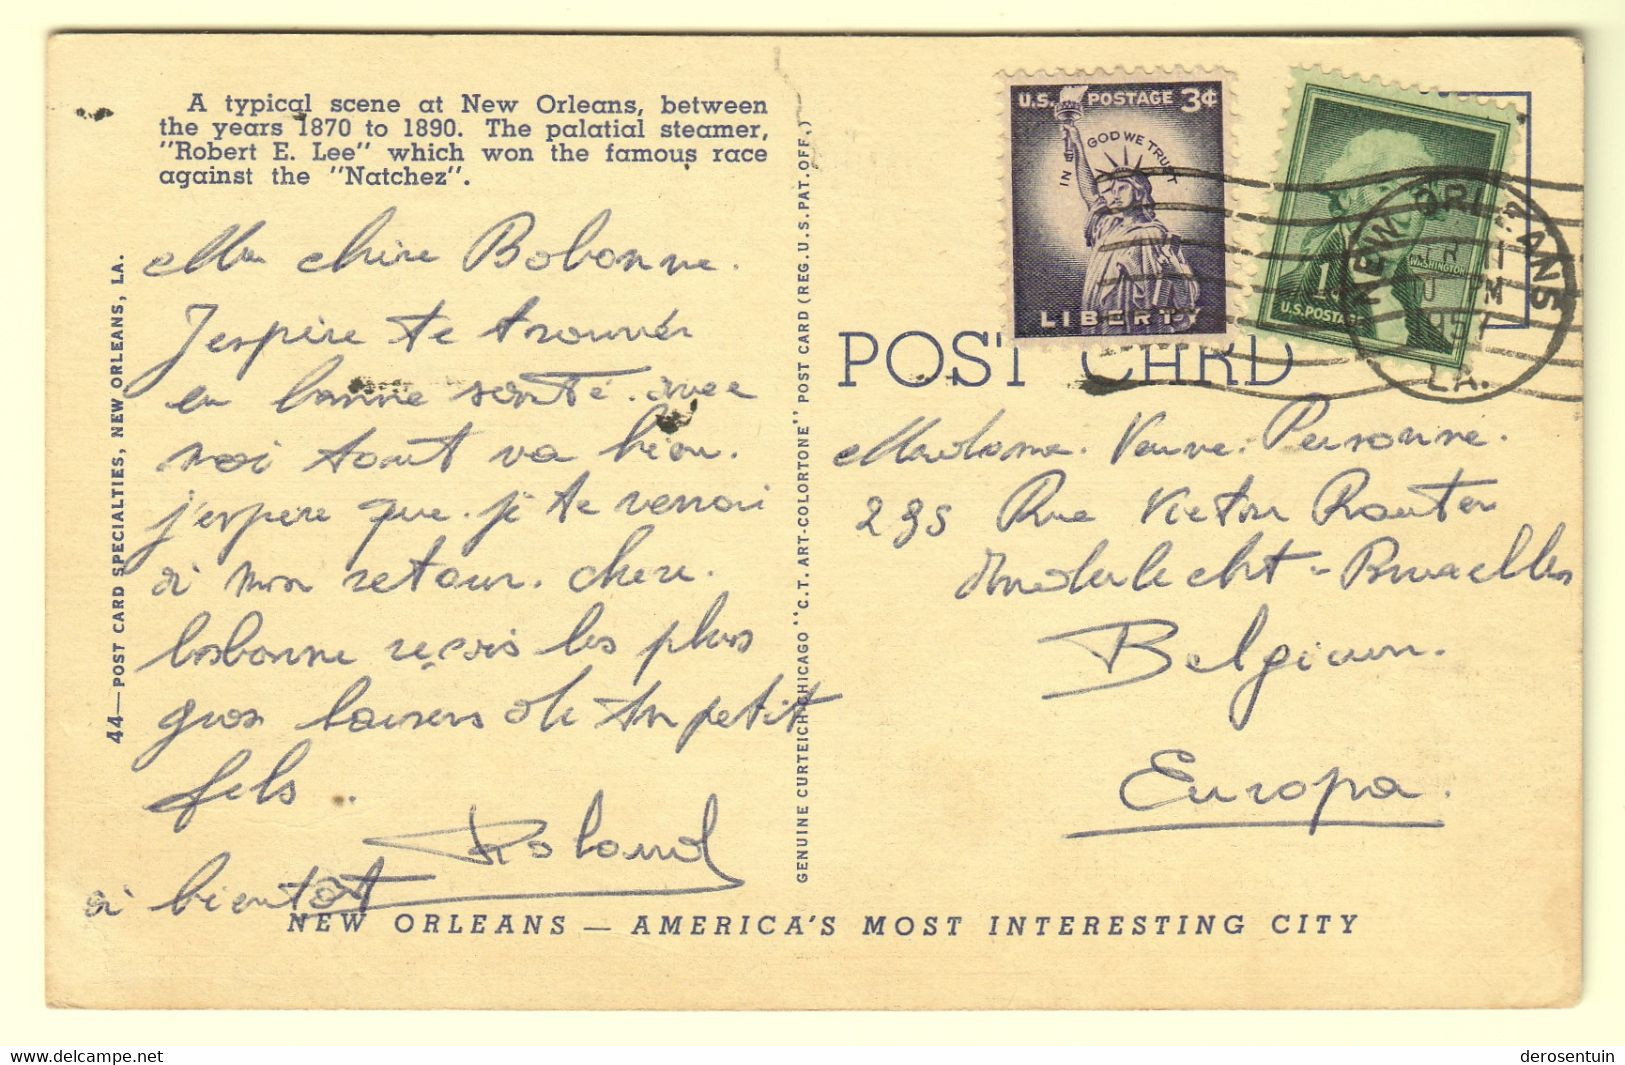 A typical scene at New Orleans, between
the years 1870 to 1890. The palatial steamer,
"Robert E. Lee" which won the famous race
against the "Natchez".
Ma chère Bobonne.
J'espère te trouver
en bonne santé. avec
moi tout va bien.
j'espere que je te verrai
à mon retour. chere.
bobonne reçois les plus
gros baisers de ton petit
fils.
Roland
à bientôt
44—POST CARD SPECIALTIES, NEW ORLEANS, LA.
GENUINE CURTEICH-CHICAGO "C.T. ART-COLORTONE" POST CARD (REG. U.S. PAT. OFF.)
U.S. POSTAGE 3¢
IN GOD WE TRUST
LIBERTY
1¢
WASHINGTON
U.S. POSTAGE
NEW ORLEANS
PM
1957
LA.
POST CARD
Madame. Veuve. Personne.
235 Rue Victor Rauter
Anderlecht - Bruxelles
Belgium.
Europa.
NEW ORLEANS — AMERICA'S MOST INTERESTING CITY
http://www.delcampe.net
derosentuin